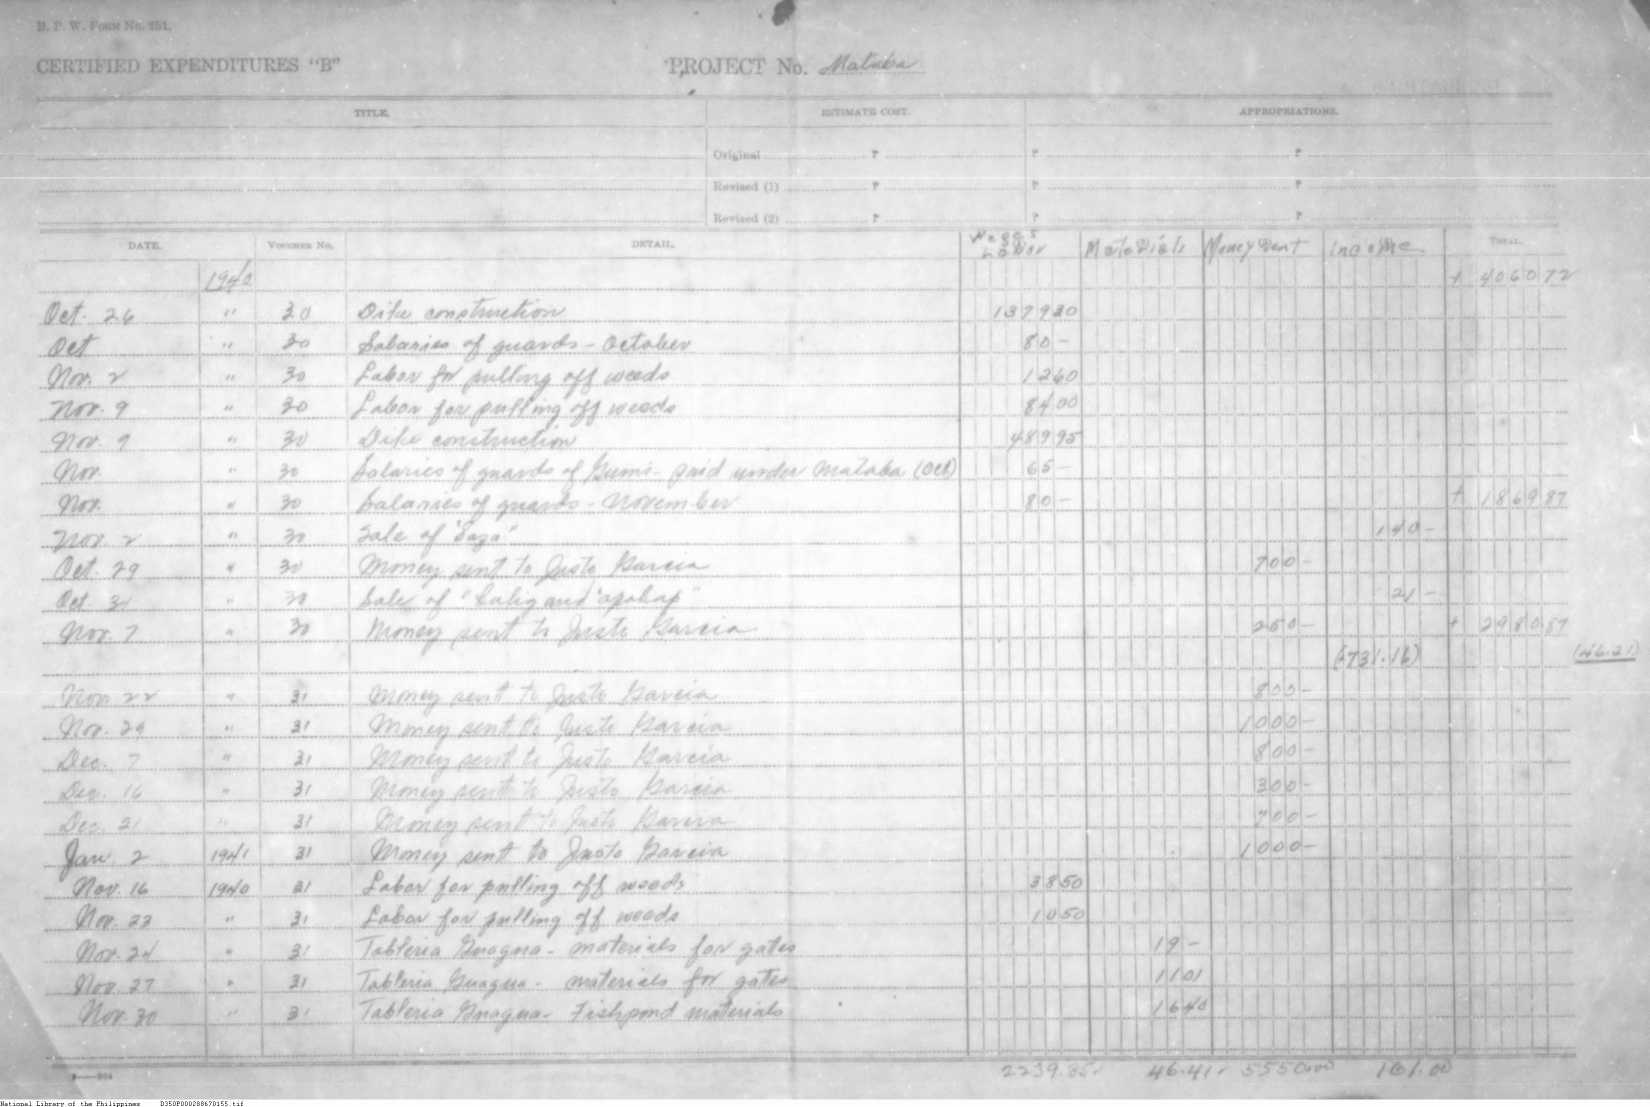 B. P. W. Form No. 251.
CERTIFIED EXPENDITURES "B" PROJECT No. Mataba
TITLE. ESTIMATE COST. APPROPRIATIONS.
Original ₱ ₱ ₱
Revised (1) ₱ ₱ ₱
Revised (2) ₱ ₱ ₱
DATE. VOUCHER No. DETAIL. Wages Labor Materials Money Sent Income TOTAL.
1940 + 4060 72
Oct. 26 " 30 Dike construction 1379 30
Oct " 30 Salaries of guards - October 80 -
Nov. 2 " 30 Labor for pulling off weeds 12 60
Nov. 9 " 30 Labor for pulling off weeds 84 00
Nov. 9 " 30 Dike construction 489 95
Nov. " 30 Salaries of guards of Gumi - paid under Mataba (Oct) 65 -
Nov. " 30 Salaries of guards - November 80 - + 1869 87
Nov. 2 " 30 Sale of "Sasa" 140 -
Oct. 29 " 30 Money sent to Justo Garcia 700 -
Oct. 31 " 30 Sale of "bulig and "apahap" 21 -
Nov. 7 " 30 Money sent to Justo Garcia 250 - + 2980.87
(-731.16) (46.21)
Nov. 22 " 31 Money sent to Justo Garcia 800 -
Nov. 29 " 31 Money sent to Justo Garcia 1000 -
Dec. 7 " 31 Money sent to Justo Garcia 800 -
Dec. 16 " 31 Money sent to Justo Garcia 300 -
Dec. 21 " 31 Money sent to Justo Garcia 700 -
Jan. 2 1941 31 Money sent to Justo Garcia 1000 -
Nov. 16 1940 31 Labor for pulling off weeds 38 50
Nov. 23 " 31 Labor for pulling off weeds 10 50
Nov. 24 " 31 Tableria Guagua - materials for gates 19 -
Nov. 27 " 31 Tableria Guagua - materials for gates 11 01
Nov. 30 " 31 Tableria Guagua - Fishpond materials 16 40
2239.85 46.41 5550.00 161.00
National Library of the Philippines D350P000288670155.tif